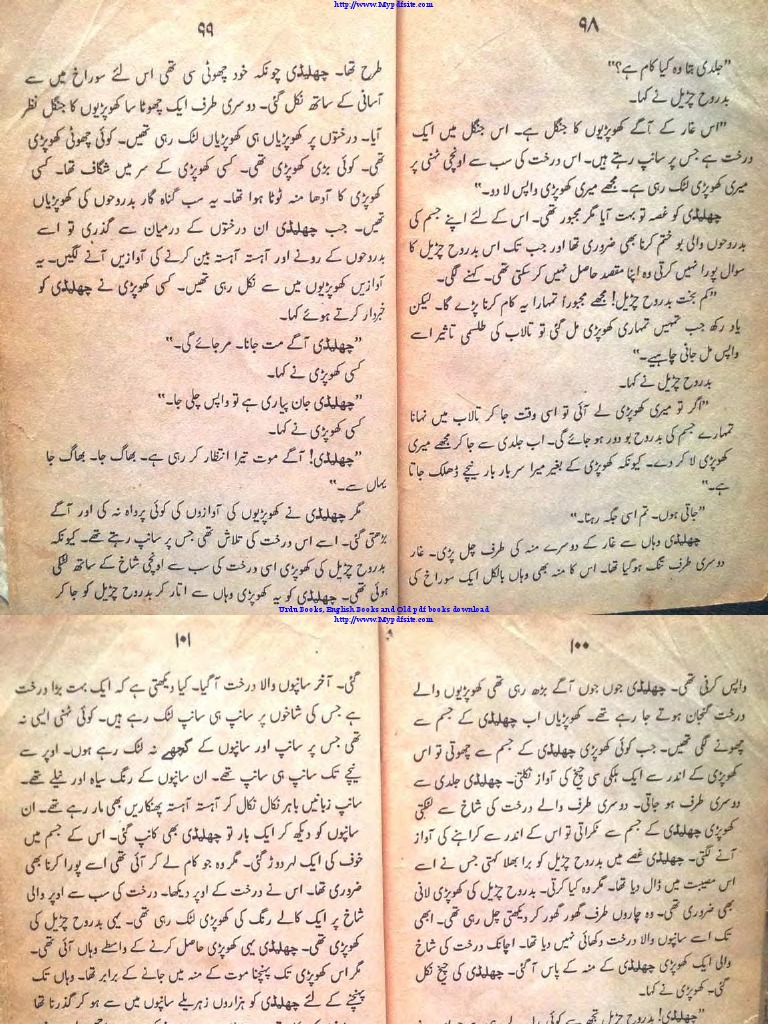 http://www.Mypdfsite.com
۹۸
"جلدی بتا وہ کیا کام ہے؟"
بدروح چڑیل نے کہا۔
"اس غار کے آگے کھوپڑیوں کا جنگل ہے۔ اس جنگل میں ایک
درخت ہے جس پر سانپ رہتے ہیں۔ اس درخت کی سب سے اونچی ٹہنی پر
میری کھوپڑی لٹک رہی ہے۔ مجھے میری کھوپڑی واپس لا دو۔"
چھلیڈی کو غصہ تو بہت آیا مگر مجبور تھی۔ اس کے لئے اپنے جسم کی
بدروحوں والی بو ختم کرنا بھی ضروری تھا اور جب تک اس بدروح چڑیل کا
سوال پورا نہیں کرتی وہ اپنا مقصد حاصل نہیں کر سکتی تھی۔ کہنے لگی۔
"کم بخت بدروح چڑیل! مجھے مجبوراً تمہارا یہ کام کرنا پڑے گا۔ لیکن
یاد رکھ جب تمہیں تمہاری کھوپڑی مل گئی تو تالاب کی طلسمی تاثیر اسے
واپس مل جانی چاہیے۔"
بدروح چڑیل نے کہا۔
"اگر تو میری کھوپڑی لے آئی تو اسی وقت جا کر تالاب میں نہانا
تمہارے جسم کی بدروح بو دور ہو جائے گی۔ اب جلدی سے جا کر مجھے میری
کھوپڑی لا کر دے۔ کیونکہ کھوپڑی کے بغیر میرا سر بار بار نیچے ڈھلک جاتا
ہے۔"
"جاتی ہوں۔ تم اسی جگہ رہنا۔"
چھلیڈی وہاں سے غار کے دوسرے منہ کی طرف چل پڑی۔ غار
دوسری طرف تنگ ہو گیا تھا۔ اس کا منہ بھی وہاں بالکل ایک سوراخ کی
۹۹
طرح تھا۔ چھلیڈی چونکہ خود چھوٹی سی تھی اس لئے سوراخ میں سے
آسانی کے ساتھ نکل گئی۔ دوسری طرف ایک چھوٹا سا کھوپڑیوں کا جنگل نظر
آیا۔ درختوں پر کھوپڑیاں ہی کھوپڑیاں لٹک رہی تھیں۔ کوئی چھوٹی کھوپڑی
تھی۔ کوئی بڑی کھوپڑی تھی۔ کسی کھوپڑی کے سر میں شگاف تھا۔ کسی
کھوپڑی کا آدھا منہ ٹوٹا ہوا تھا۔ یہ سب گناہ گار بدروحوں کی کھوپڑیاں
تھیں۔ جب چھلیڈی ان درختوں کے درمیان سے گذری تو اسے
بدروحوں کے رونے اور آہستہ آہستہ بین کرنے کی آوازیں آنے لگیں۔ یہ
آوازیں کھوپڑیوں میں سے نکل رہی تھیں۔ کسی کھوپڑی نے چھلیڈی کو
خبردار کرتے ہوئے کہا۔
"چھلیڈی آگے مت جانا۔ مر جائے گی۔"
کسی کھوپڑی نے کہا۔
"چھلیڈی جان پیاری ہے تو واپس چلی جا۔"
کسی کھوپڑی نے کہا۔
"چھلیڈی! آگے موت تیرا انتظار کر رہی ہے۔ بھاگ جا۔ بھاگ جا
یہاں سے۔"
مگر چھلیڈی نے کھوپڑیوں کی آوازوں کی کوئی پرواہ نہ کی اور آگے
بڑھتی گئی۔ اسے اس درخت کی تلاش تھی جس پر سانپ رہتے تھے۔ کیونکہ
بدروح چڑیل کی کھوپڑی اسی درخت کی سب سے اونچی شاخ کے ساتھ لٹکی
ہوئی تھی۔ چھلیڈی کو یہ کھوپڑی وہاں سے اتار کر بدروح چڑیل کو جا کر
Urdu Books, English Books and Old pdf books download
http://www.Mypdfsite.com
۱۰۰
واپس کرنی تھی۔ چھلیڈی جوں جوں آگے بڑھ رہی تھی کھوپڑیوں والے
درخت گنجان ہوتے جا رہے تھے۔ کھوپڑیاں اب چھلیڈی کے جسم سے
چھونے لگی تھیں۔ جب کوئی کھوپڑی چھلیڈی کے جسم سے چھوتی تو اس
کھوپڑی کے اندر سے ایک ہلکی سی چیخ کی آواز نکلتی۔ چھلیڈی جلدی سے
دوسری طرف ہو جاتی۔ دوسری طرف والے درخت کی شاخ سے لٹکتی
کھوپڑی چھلیڈی کے جسم سے ٹکراتی تو اس کے اندر سے کراہنے کی آواز
آنے لگتی۔ چھلیڈی غصے میں بدروح چڑیل کو برا بھلا کہتی جس نے اسے
اس مصیبت میں ڈال دیا تھا۔ مگر وہ کیا کرتی۔ بدروح چڑیل کی کھوپڑی لانی
بھی ضروری تھی۔ وہ چاروں طرف گھور گھور کر دیکھتی چل رہی تھی۔ ابھی
تک اسے سانپوں والا درخت دکھائی نہیں دیا تھا۔ اچانک درخت کی شاخ
والی ایک کھوپڑی چھلیڈی کے منہ کے پاس آ گئی۔ چھلیڈی کی چیخ نکل
گئی۔ کھوپڑی نے کہا۔
"چھلیڈی! بدروح چڑیل تجھ سے کوئی
۱۰۱
گئی۔ آخر سانپوں والا درخت آ گیا۔ کیا دیکھتی ہے کہ ایک بہت بڑا درخت
ہے جس کی شاخوں پر سانپ ہی سانپ لٹک رہے ہیں۔ کوئی ٹہنی ایسی نہ
تھی جس پر سانپ اور سانپوں کے گچھے نہ لٹک رہے ہوں۔ اوپر سے
نیچے تک سانپ ہی سانپ تھے۔ ان سانپوں کے رنگ سیاہ اور نیلے تھے۔
سانپ زبانیں باہر نکال نکال کر آہستہ آہستہ پھنکاریں بھی مار رہے تھے۔ ان
سانپوں کو دیکھ کر ایک بار تو چھلیڈی بھی کانپ گئی۔ اس کے جسم میں
خوف کی ایک لہر دوڑ گئی۔ مگر وہ جو کام لے کر آئی تھی اسے پورا کرنا بھی
ضروری تھا۔ اس نے درخت کے اوپر دیکھا۔ درخت کی سب سے اوپر والی
شاخ پر ایک کالے رنگ کی کھوپڑی لٹک رہی تھی۔ یہی بدروح چڑیل کی
کھوپڑی تھی۔ چھلیڈی یہی کھوپڑی حاصل کرنے کے واسطے وہاں آئی تھی۔
مگر اس کھوپڑی تک پہنچنا موت کے منہ میں جانے کے برابر تھا۔ وہاں تک
پہنچنے کے لئے چھلیڈی کو ہزاروں زہریلے سانپوں میں سے ہو کر گذرنا تھا